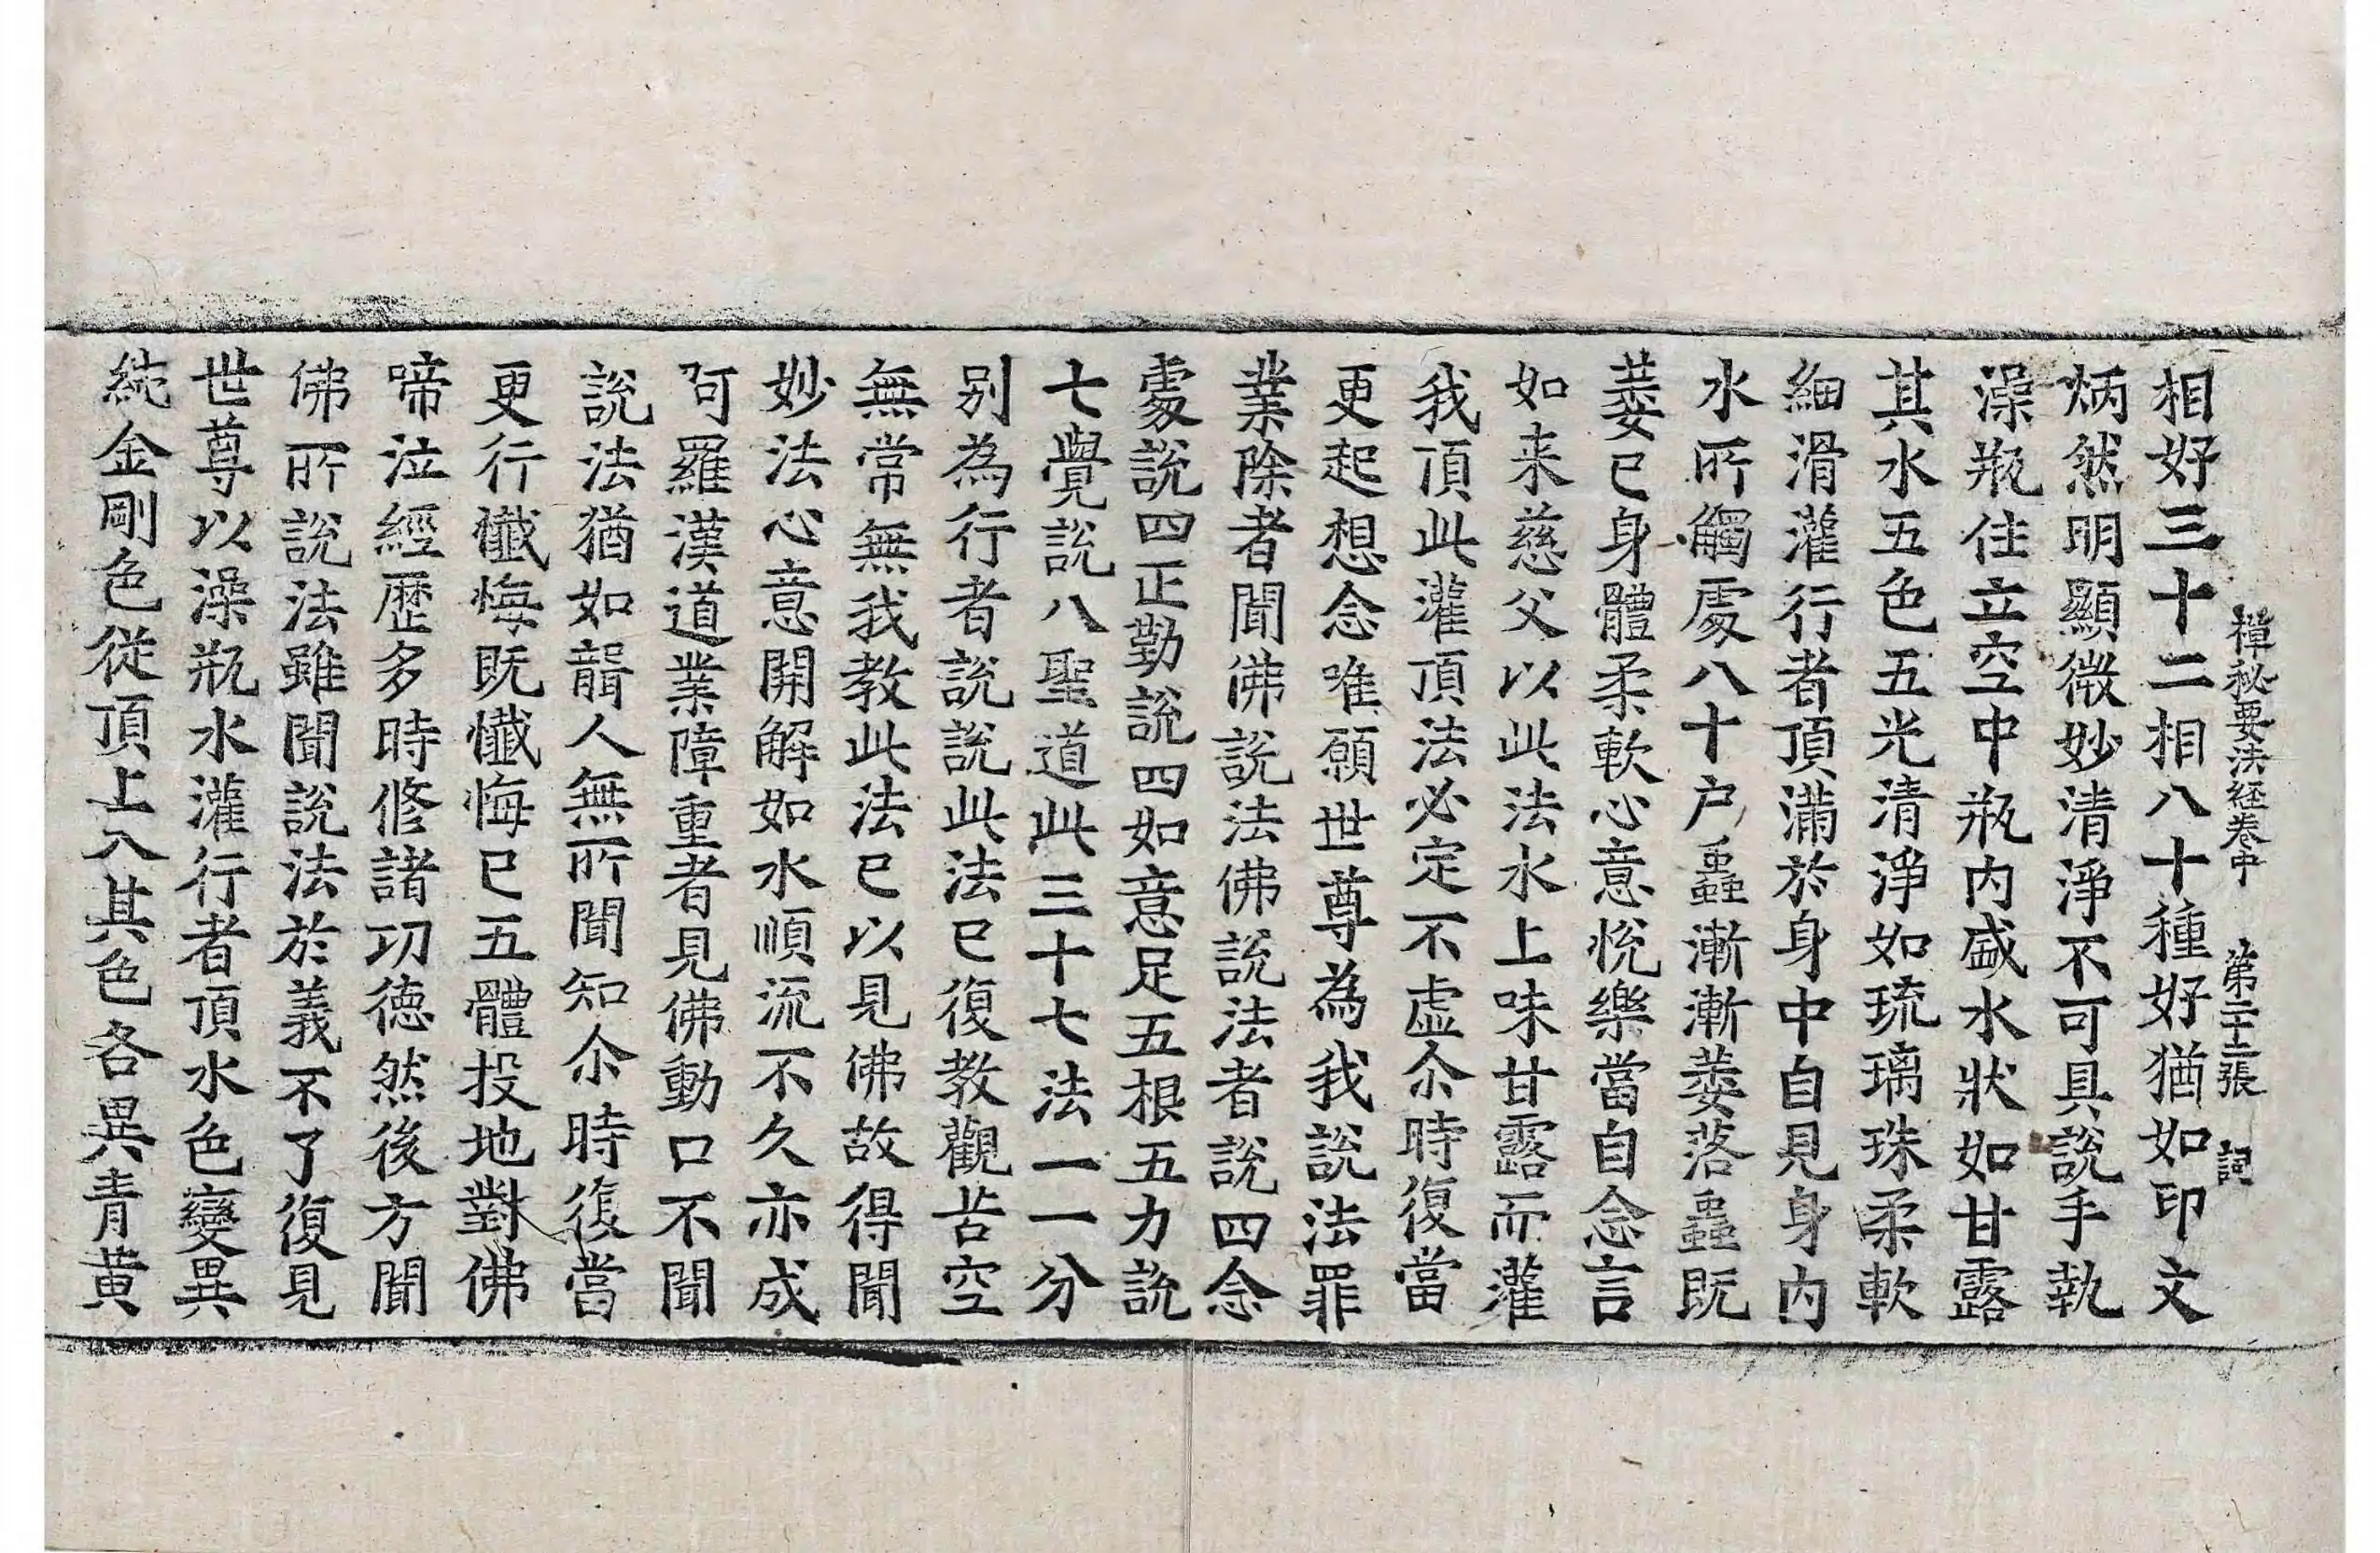 禪秘要法経卷中 第二十二張 詞
相好三十二相八十種好猶如印文
炳然明顯微妙清淨不可具說手執
澡瓶住立空中瓶内盛水狀如甘露
其水五色五光清淨如琉璃珠柔軟
細滑灌行者頂滿於身中自見身内
水所觸處八十户蟲漸漸萎落蟲既
萎已身體柔軟心意悅樂當自念言
如来慈父以此法水上味甘露而灌
我頂此灌頂法必定不虛尒時復當
更起想念唯願世尊為我說法罪
業除者聞佛說法佛說法者說四念
處說四正勤說四如意足五根五力說
七覺說八聖道此三十七法一一分
别為行者說說此法已復教觀苦空
無常無我教此法已以見佛故得聞
妙法心意開解如水順流不久亦成
阿羅漢道業障重者見佛動口不聞
說法猶如聾人無所聞知尒時復當
更行懺悔既懺悔已五體投地對佛
啼泣經歷多時修諸功德然後方聞
佛所說法雖聞說法於義不了復見
世尊以澡瓶水灌行者頂水色變異
純金剛色從頂上入其色各異青黄